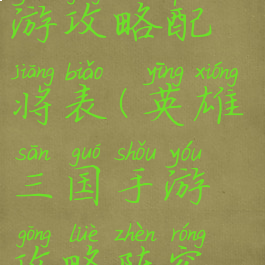 游攻略配
jiāng biǎo yīng xióng
将表(英雄
sān guó shǒu yóu
三国手游
gōng lüè zhèn róng
攻略阵容